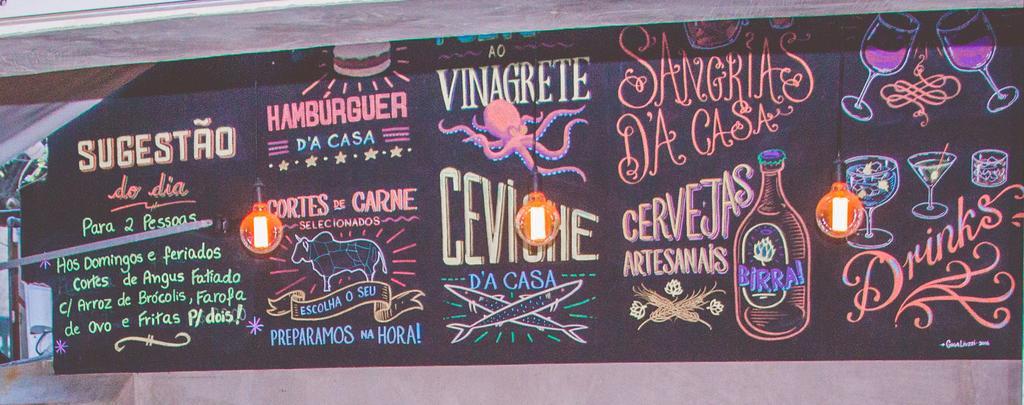 SUGESTÃO
do dia
Para 2 Pessoas
Aos Domingos e feriados
cortes de Angus Fatiado
c/ Arroz de Brócolis, Farofa
de ovo e Fritas P/ dois!
HAMBÚRGUER
D'A CASA
CORTES DE CARNE
SELECIONADOS
ESCOLHA O SEU
PREPARAMOS NA HORA!
AO
VINAGRETE
CEVICHE
D'A CASA
SANGRIAS
D'A CASA
CERVEJAS
ARTESANAIS
BIRRA!
Drinks